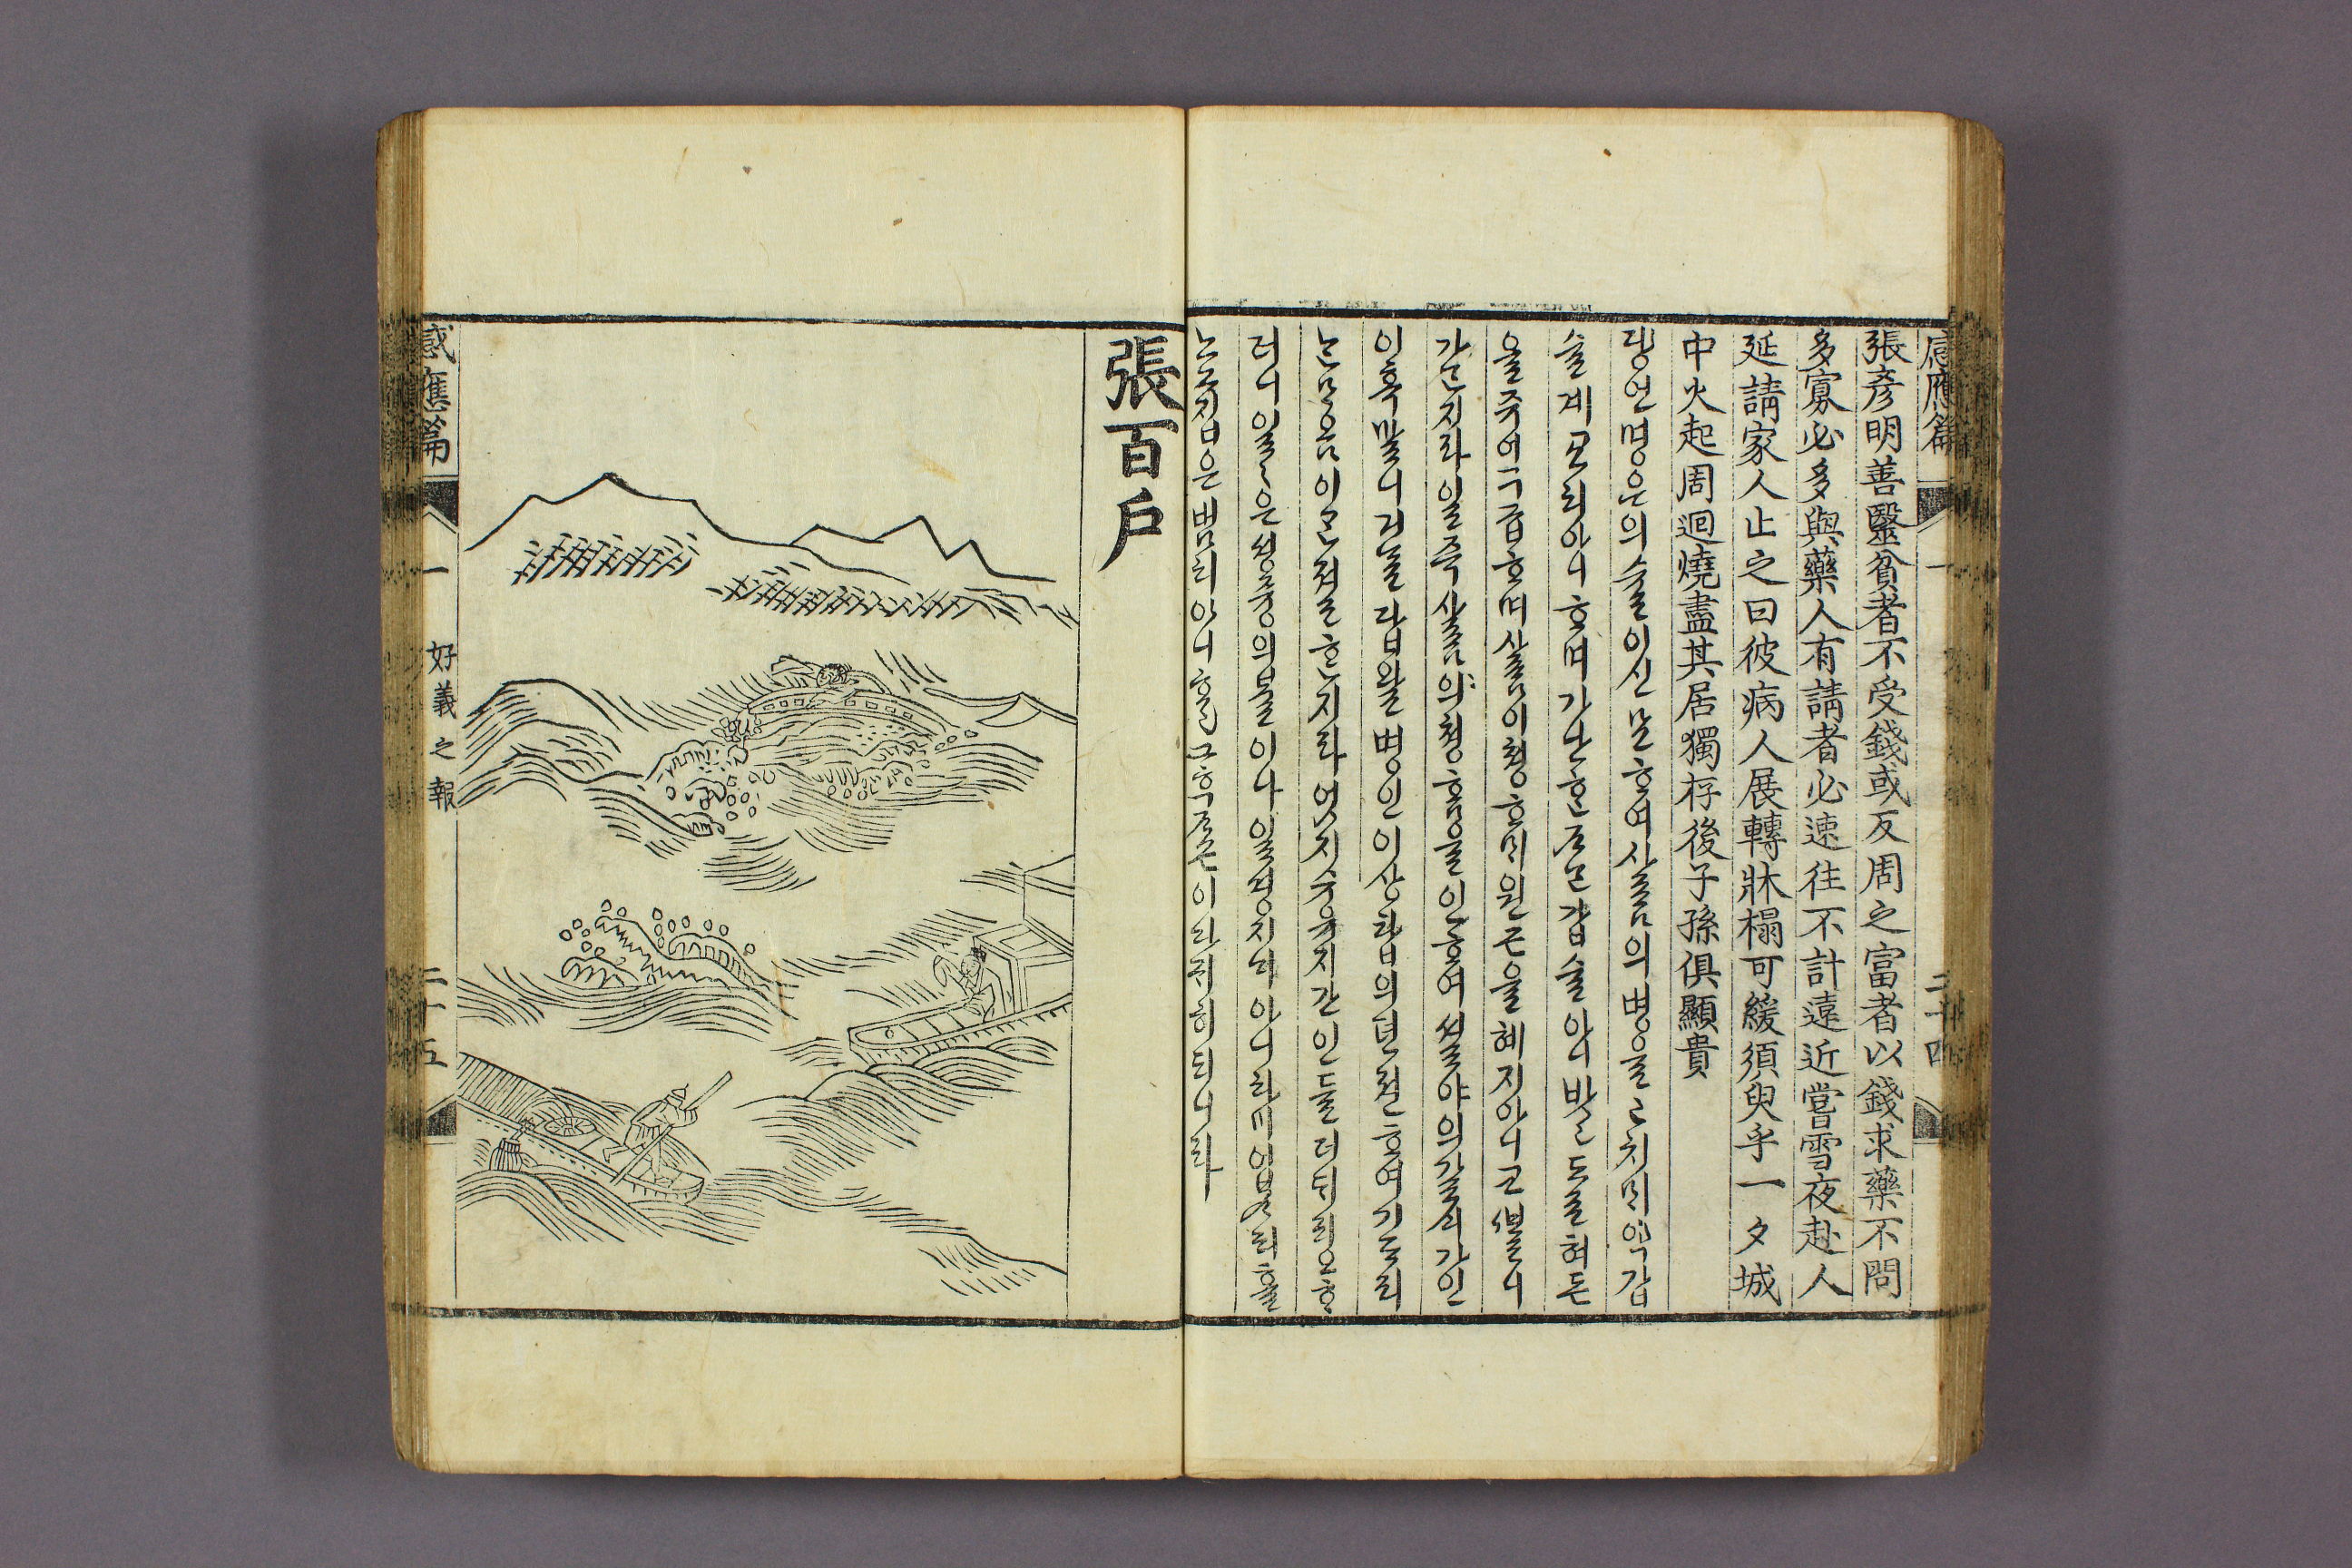 感應篇 一 二十四
張彦明善醫貧者不受錢或反周之富者以錢求藥不問
多寡必多與藥人有請者必速往不計遠近嘗雪夜赴人
延請家人止之曰彼病人展轉牀榻可緩須臾乎一夕城
中火起周迴燒盡其居獨存後子孫俱顯貴
댱언명은의슐이신묘ᄒᆞ여사ᄅᆞᆷ의병을고치ᄆᆡ약갑
슬계교치아니ᄒᆞ며가난ᄒᆞᆫᄌᆞᄂᆞᆫ갑슬아니밧고도로혀돈
을주어구급ᄒᆞ며사ᄅᆞᆷ이쳥ᄒᆞᄆᆡ원근을혜지아니코ᄲᆞᆯ니
가ᄂᆞᆫ지라일즉사ᄅᆞᆷ의쳥ᄒᆞᆷ을인ᄒᆞ여셜야의갈ᄉᆡ가인
이혹말니거ᄂᆞᆯ답왈병인이상탑의뎐젼ᄒᆞ여기ᄃᆞ리
ᄂᆞᆫᄆᆞᄋᆞᆷ이ᄀᆞᆫ졀ᄒᆞᆫ지라엇지슈유지간인들더ᄃᆡ리오ᄒᆞ
더니일일은셩즁의불이나일경지ᄂᆡ아니업ᄉᆞ되홀
노그집은범치아니ᄒᆞ고그후ᄌᆞ손이다귀히되니라
張百戶
感應篇 一 好義之報 二十五